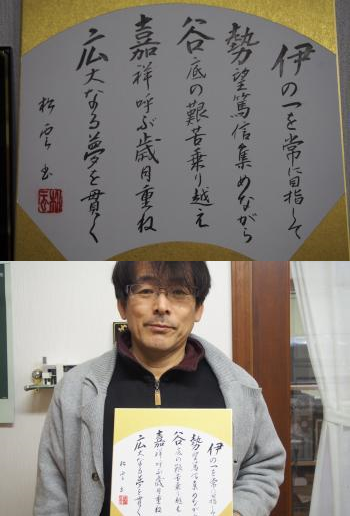 伊の一を常に目指して
勢望篤信集めながら
谷底の艱苦乗り越え
嘉祥呼ぶ歳月重ね
広大なる夢を貫く
松雲書
伊の一を常に目指して
勢望篤信集めながら
谷底の艱苦乗り越え
嘉祥呼ぶ歳月重ね
広大なる夢を貫く
松雲書